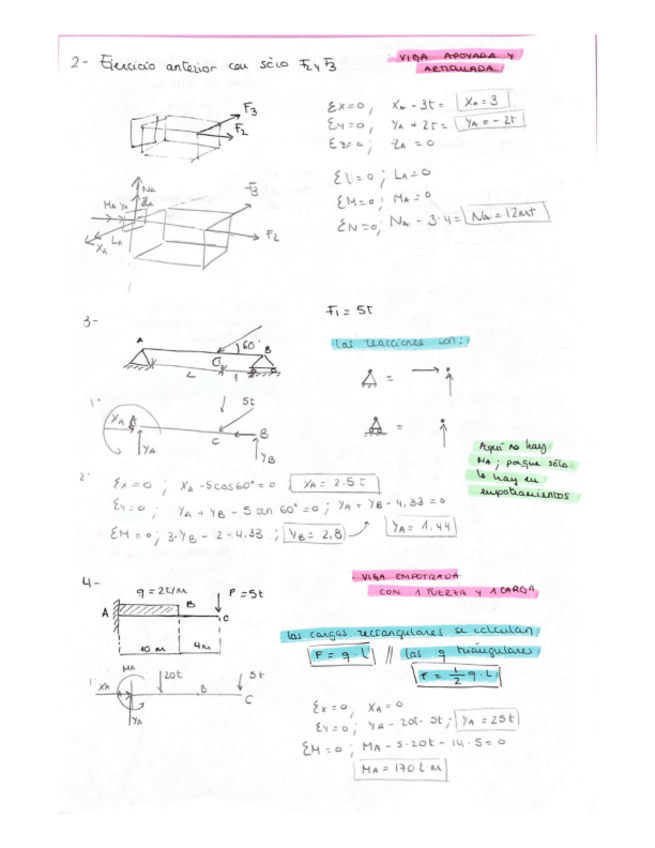 2- Ejercicio anterior con sólo F2 y F3
VIGA APOYADA Y
ARTICULADA
F3
F2
Σx=0; XA - 3t = XA = 3
Σy=0; YA + 2t = YA = - 2t
Σz=0; ZA = 0
ΣL=0; LA=0
ΣM=0; MA=0
ΣN=0; NA - 3·4 = NA = 12mt
NA
MA YA ZA
LA
XA
F3
F2
3-
F1 = 5t
A
60°
B
C
2
1
Las reacciones son:
=
=
1º
XA A
YA
5t
C
B
YB
Aquí no hay
MA; porque sólo
lo hay en
empotramientos
2º
Σx=0; XA - 5cos60° = 0; XA = 2.5t
Σy=0; YA + YB - 5 sen 60° = 0; YA + YB - 4,33 = 0
ΣM=0; 3·YB - 2·4,33; YB = 2,8
YA = 1,44
4-
VIGA EMPOTRADA
CON 1 FUERZA Y 1 CARGA
q = 2t/m
P = 5t
A
B
C
10 m
4m
Las cargas rectangulares se calculan
F = q·L // las q triangulares
P = 1/2 q·L
1º
MA
XA
YA
20t
B
5t
C
Σx=0; XA=0
Σy=0; YA - 20t - 5t; YA = 25t
ΣM=0; MA - 5·20t - 14·5 = 0
MA = 170t m